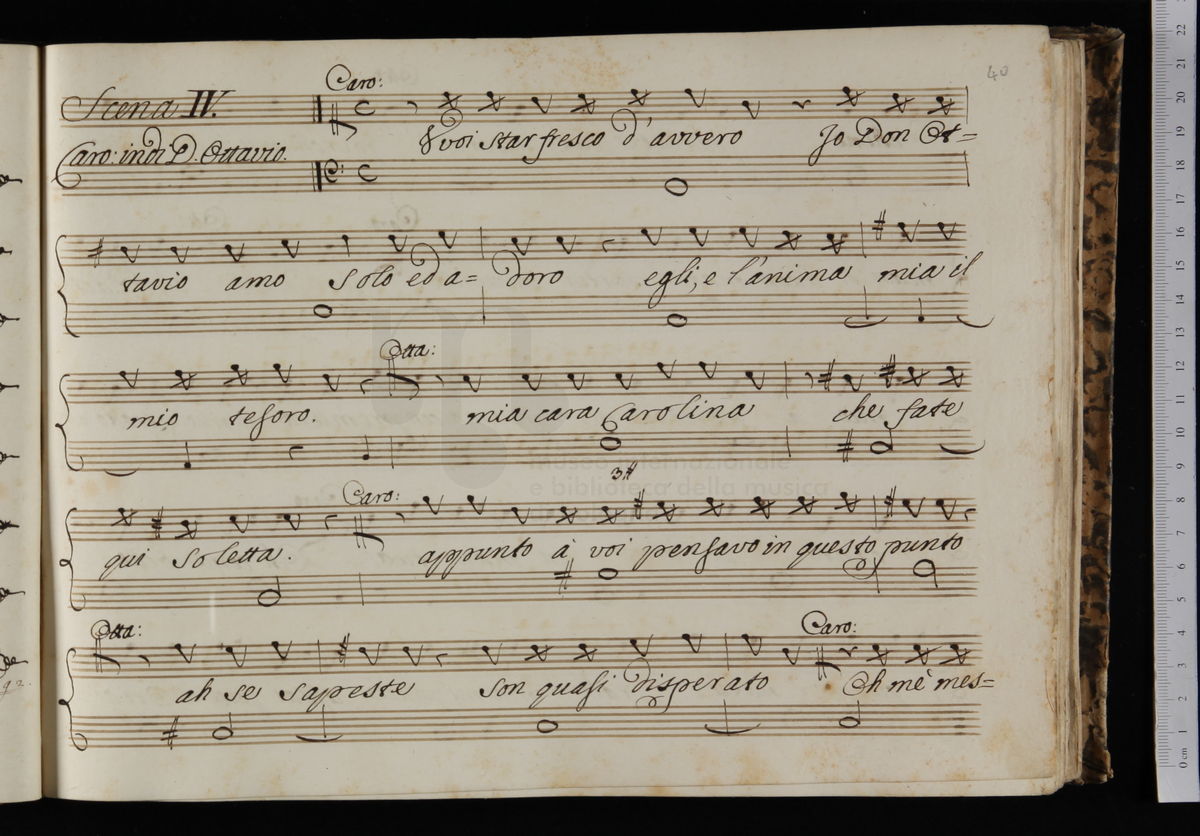 40
Caro:
Scena IV.
Caro: indi D. Ottavio.
voi star fresco d'avvero Jo Don Ot=
tavio amo solo ed a= doro egli, e l'anima mia il
Otta:
mio tesoro. mia cara Carolina che fate
3#
Caro:
qui soletta. appunto à voi pensavo in questo punto
Otta: Caro:
ah se sapeste son quasi disperato Oh mè mes=
museo internazionale
e biblioteca della musica
22
21
20
19
18
17
16
15
14
13
12
11
10
9
8
7
6
5
4
3
2
1
0 cm